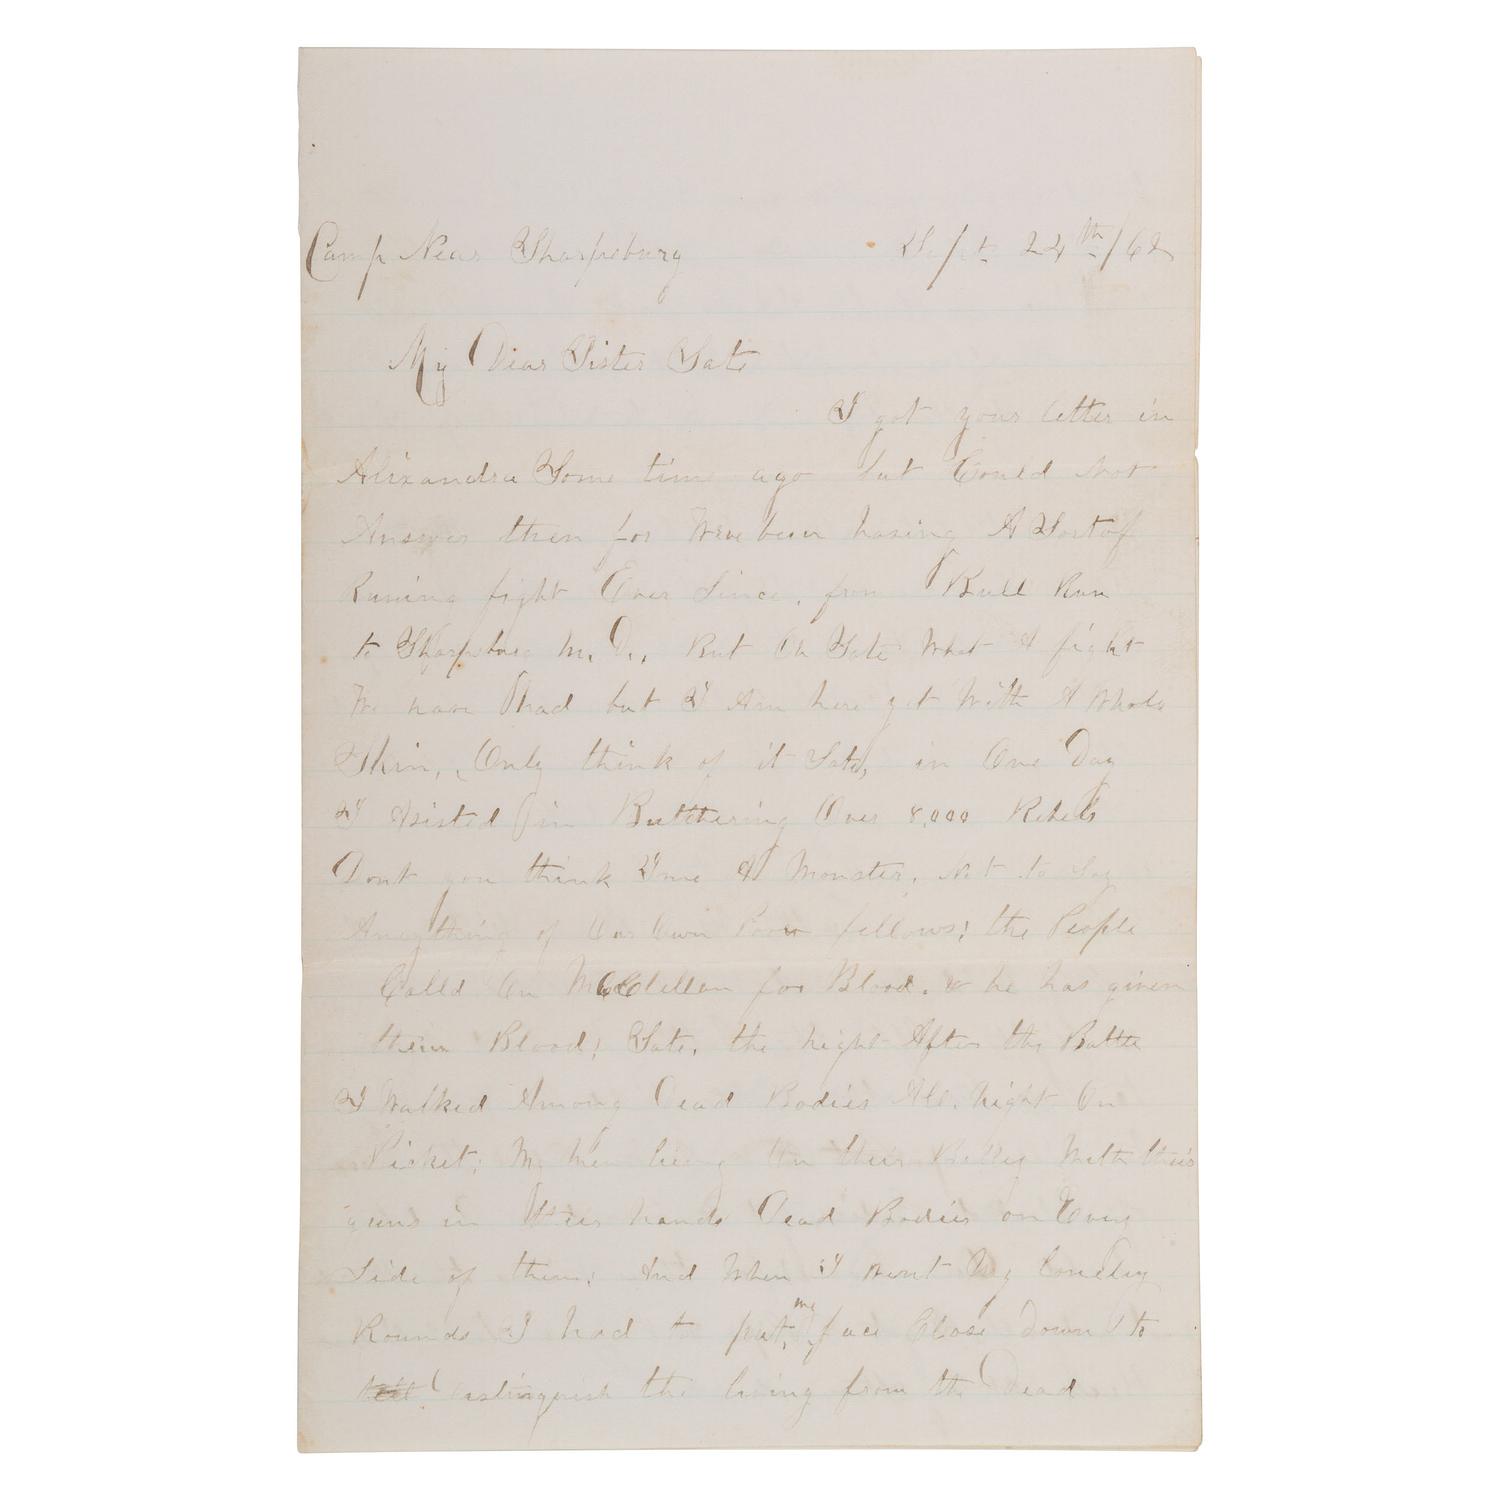 Camp Near Sharpsburg Sept 24th/62
My Dear Sister Sate
I got your letter in
Alixandra Some time ago but Could Not
Answer then for Weve been having A Sort of
Runing fight Ever Since, from Bull Run
to Sharpsburg M.D., But Oh Sate What A fight
We have had but I Am here yet With A Whole
Skin, Only think of it Sate, in One Day
I Asisted in Buttchering Over 8,000 Rebels
Dont you think Ime A Monster, Not to Say
Aneything of Our Own Poor fellows; the People
Calld On McClellan for Blood. & he has given
them Blood! Sate, the night After the Battle
I Walked Among Dead Bodies All night On
Picket; My Men lieing On their Belleys With their
guns in their hands Dead Bodies on Every
Side of them; And When I Went My Lonely
Rounds I had to put my face Close Down to
tell Distinguish the living from the Dead